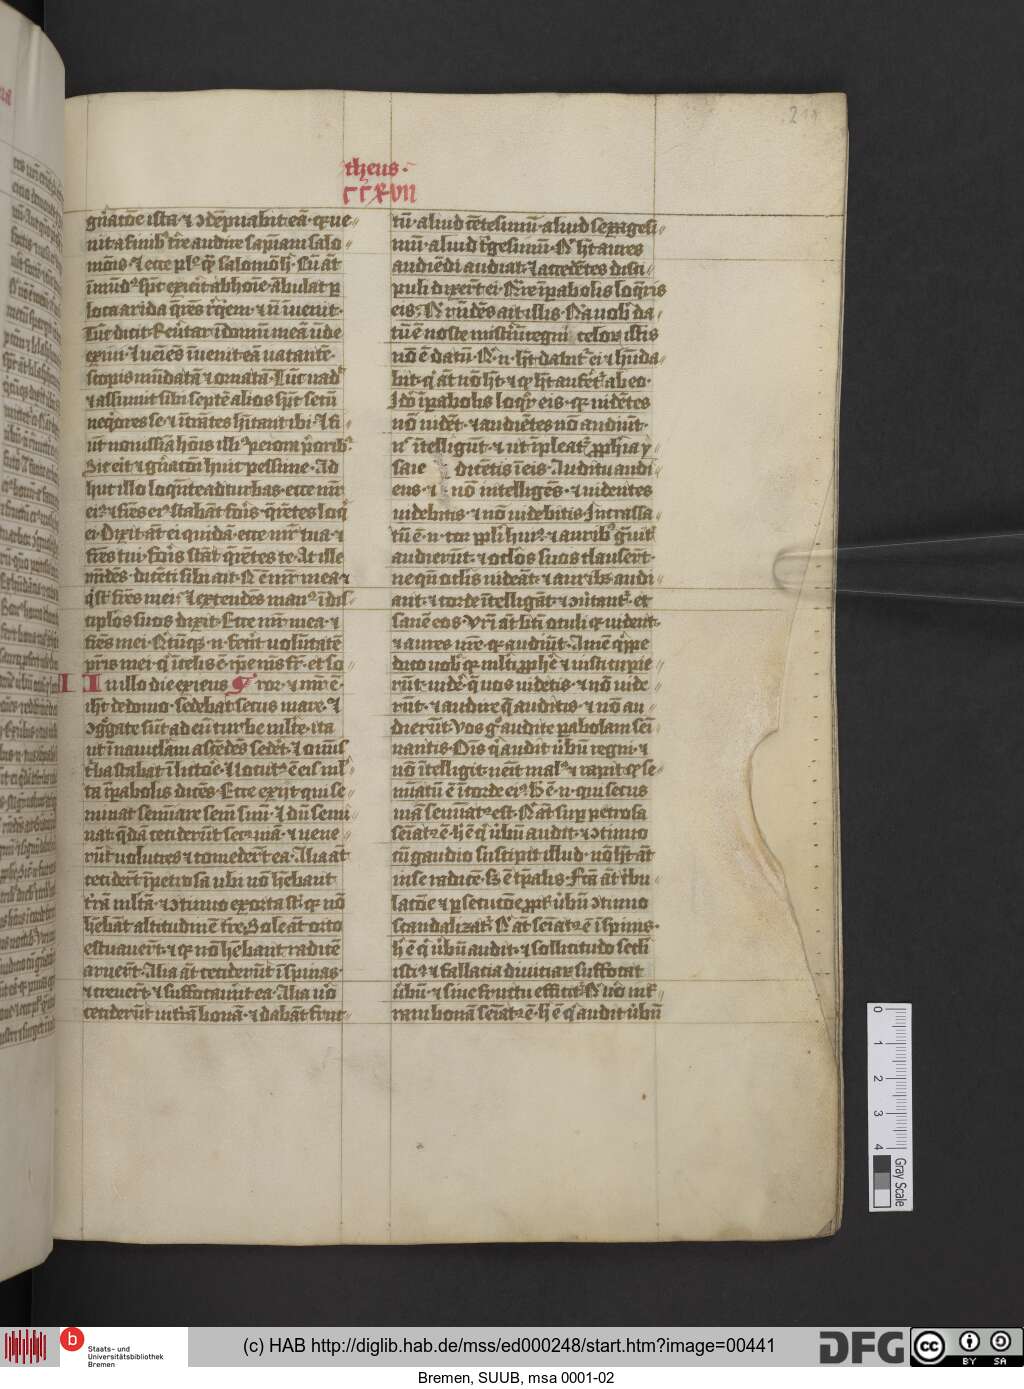 theus·
CCXVII
gn̄atōe ista· ⁊ ꝯdēpnabit eā· q̄ ue
nit a finib; t̄re audire sapīam salo
mōis· ⁊ ecce pl9 q̄ salomō h̄· Cū āt
īmūd9 sp̄c exierit ab hoīe· ābulat ꝑ
loca arida q̄rēs rꝗem· ⁊ nō īuenit·
Tūc dicit· Reūtar ī domū meā ūde
exiui· ⁊ ueniēs īuenit eā uacantē·
scopis mūdatā ⁊ ornatā· Tūc uadt
⁊ assumit sibi septē alios spc̄ secū
neꝗores se· ⁊ ītrātes hītant ibi· ⁊ fi
ūt nouissīa hōīs illi9 peiora p̄orib;
Sic erit ⁊ gn̄atōi huic pessime· Ad
huc illo loquēte ad turbas· ecce mr̄
ei9 ⁊ fr̄es ei9 stabāt foris· q̄rētes loqi
ei· Dixit āt ei quidā· ecce mr̄ tua· ⁊
fr̄es tui foris stāt q̄rētes te· At ille
rn̄dēs· dicēti sibi ait· Q̄ ē mr̄ mea ⁊
q̄ st̄ fr̄es mei· ⁊ extendēs man9 ī dis
cip̄los suos dixit· Ecce mr̄ mea· ⁊
fr̄es mei· Q̄cūq; n· fecit uolūtatē
pr̄is mei· q̄ ī celis ē· ip̄e m̄s fr̄· et so
I In illo die exiens ror· ⁊ mr̄ ē·
ih̄c de domo· sedebat secus mare· ⁊
ꝯgͣgate sūt ad eū turbe multe· ita
ut ī nauiclām ascēdēs sedēt· ⁊ omīs
t̄ba stabat ī littōe· ⁊ locut9 ē eis ml̄
ta ī ꝑabolis dicēs· Ecce exijt qui se
minat semīare semē suū· ⁊ dū semi
nat· q̄dā ceciderūt sec9 uiā· ⁊ uene
rūt uolucres ⁊ comederūt ea· Alia āt
ceciderūt ī petrosa ubi nō hēbant
t̄rā multā· ⁊ ꝯtinuo exorta st̄· q̄ nō
hēbāt altitudinē t̄re· Sole āt orto
estuauerūt· ⁊ q̄ nō hēbant radicē
aruerūt· Alia āt ceciderūt ī spinas·
⁊ creuerūt· ⁊ suffocauerūt ea· Alia uo
ceciderūt in t̄rā bonā· ⁊ dabāt fruc
tū· aliud cētesimū· aliud sexagesi
mū· aliud tͥgesimū· Q̄ ht̄ aures
audiēdi audiat· ⁊ accedētes disci
puli dixerūt ei· Q̄re ī ꝑabolis loq̄ris
eis· Q̄ rn̄dēs ait illis· Q̄a uob̄ da
tū ē nosse mist̄iū regni celorꝝ illis
nō ē datū· Q̄ n· ht̄· dabit̄ ei ⁊ hūda
bit· q̄ āt nō ht̄· ⁊ q̄ ht̄ aufet̄ ab eo·
Idō ī ꝑabolis loqr eis· q̄ uidētes
nō uidēt· ⁊ audiētes nō audiūt·
nͨ ītelligūt· ⁊ ut īpleat̄ ꝓph̄ia y
saie dicētis ī eis· Auditu audi
etis· ⁊ nō intelligetis· ⁊ uidentes
uidebitis· ⁊ nō uidebitis· Incrassa
tū ē n· cor pp̄li hui9· ⁊ aurib9 gͣuit̄
audierūt· ⁊ oc̄los suos clauserūt·
ne q̄n oc̄lis uideāt· ⁊ aurib; audi
ant· ⁊ corde ītelligāt· ⁊ ꝯūtant̄· et
sanē eos· Vr̄i āt bt̄i oculi q̄ uidēt·
⁊ aures ur̄e· q̄ audiūt· Amē q̄ppe
dico uob̄· q̄ ml̄ti ꝓph̄e ⁊ iusti cupie
rūt· uidē q̄ uos uidetis· ⁊ nō uide
rūt· ⁊ audire q̄ auditis· ⁊ nō au
dierūt· Vos g̊ audite ꝑabolam semī
nantis· Oīs q̄ audit ūbū regni· ⁊
nō ītelligit· uēit mal9 ⁊ rapit q̄ se
mīatū ē ī corde ei9· H̄ ē n· qui secus
uiā semīat9 est· Q̄ āt suꝑ petrosa
semīat9 ē· h̄ ē q̄ ūbū audit· ⁊ ꝯtinuo
cū gaudio suscipit illud· nō ht̄ āt
in se radicē· s; ē tp̄alis· Fc̄a āt tͥbu
latōe ⁊ ꝑsecutōe ꝓpt̄ ūbū ꝯtinuo
scandalizat̄· Q̄ āt semīat9 ē ī spinis·
h̄ ē q̄ ūbū audit· ⁊ sollicitudo sec̄li
isti9 ⁊ fallacia diuitiarꝝ suffocat
ūbū· ⁊ sine fructu efficit̄· Q̄ uo in t̄
ram bonā semīat9 ē· h̄ ē q̄ audit ūbū
0 1 2 3 4
Gray Scale
b
Staats- und
Universitätsbibliothek
Bremen
(c) HAB http://diglib.hab.de/mss/ed000248/start.htm?image=00441
DFG
cc BY SA
Bremen, SUUB, msa 0001-02